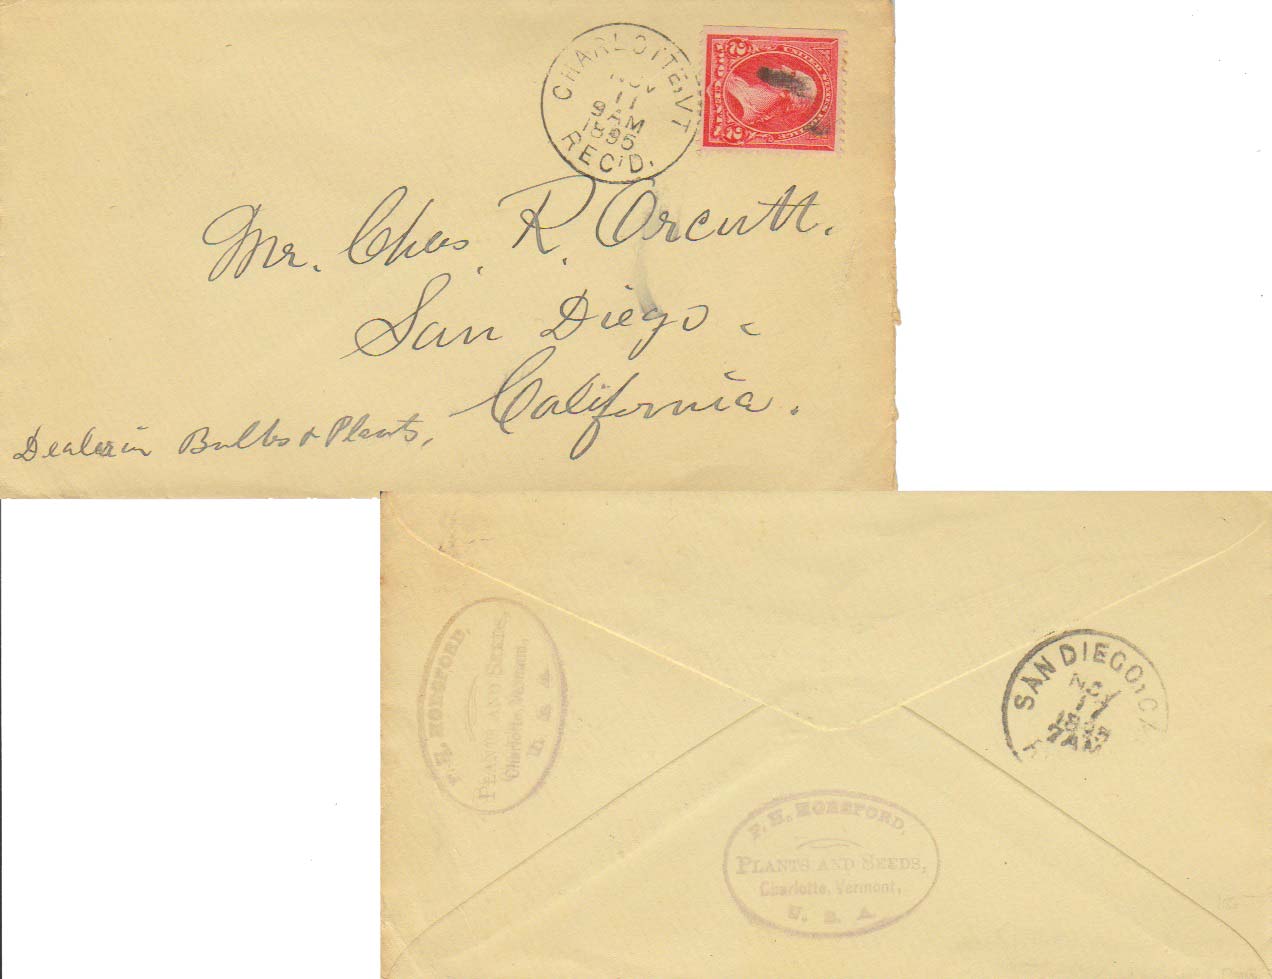 CHARLOTTE, VT
NOV
11
9 AM
1895
REC'D.
UNITED STATES
2 2
Mr. Chas. R. Orcutt.
San Diego
California.
Dealer in Bulbs & Plants.
F. H. HORSFORD,
PLANTS AND SEEDS,
Charlotte, Vermont,
U. S. A.
SAN DIEGO, CA
NOV
17
7 AM
F. H. HORSFORD,
PLANTS AND SEEDS,
Charlotte, Vermont,
U. S. A.